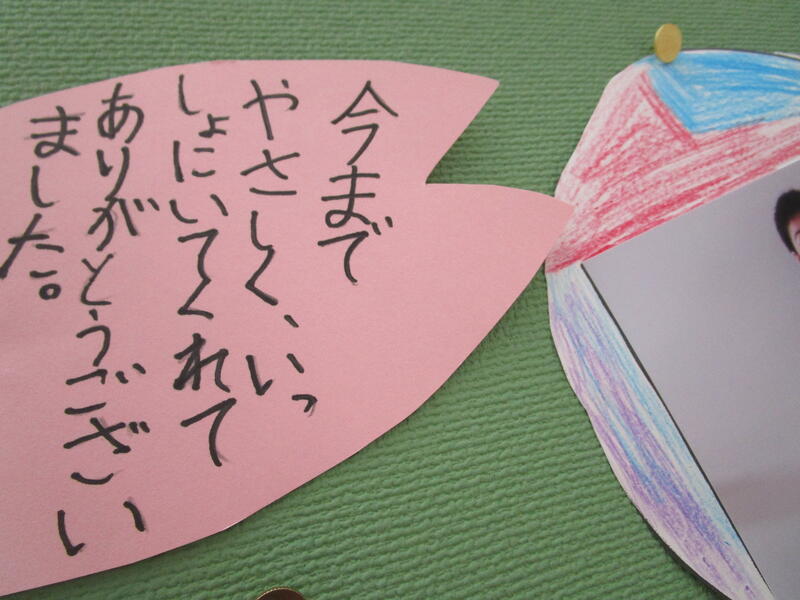 今まで
やさしく、いっ
しょにいてくれて
ありがとうござい
ました。